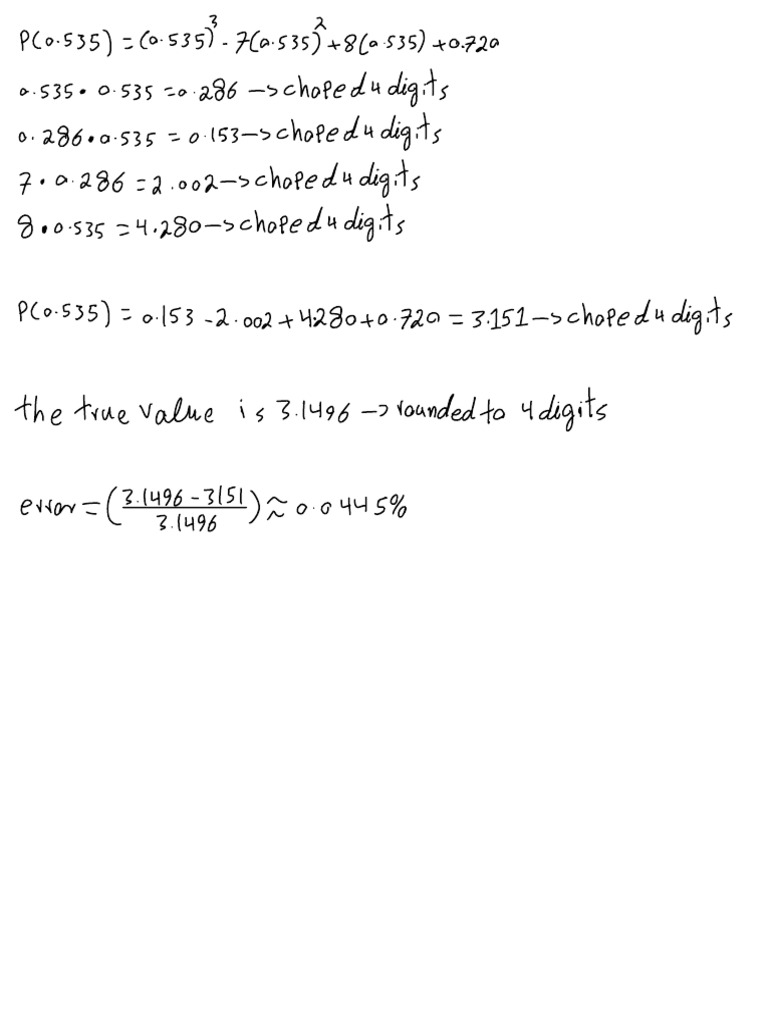 P(0.535) = (0.535)³ - 7(0.535)² + 8(0.535) + 0.720
0.535 • 0.535 = 0.286 → choped 4 digits
0.286 • 0.535 = 0.153 → choped 4 digits
7 • 0.286 = 2.002 → choped 4 digits
8 • 0.535 = 4.280 → choped 4 digits
P(0.535) = 0.153 - 2.002 + 4.280 + 0.720 = 3.151 → choped 4 digits
the true value is 3.1496 → rounded to 4 digits
error = (3.1496 - 3151 / 3.1496) ≈ 0.0445%